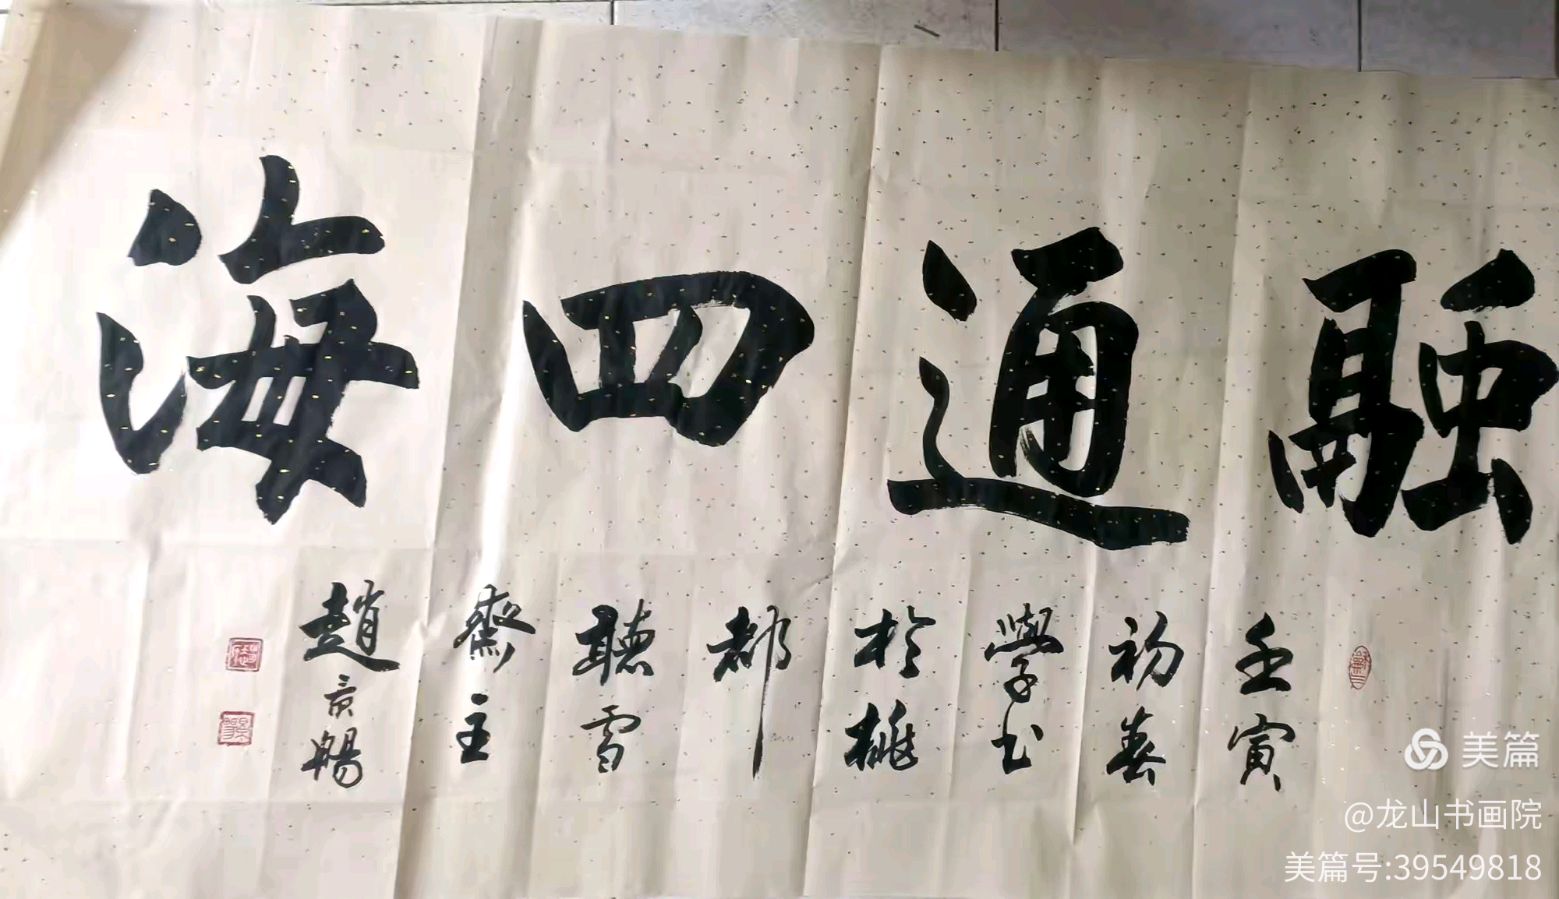 融通四海
壬寅
初春
學书
於桃
都
聽雪
齋主
趙京暢
美篇
@龙山书画院
美篇号:39549818